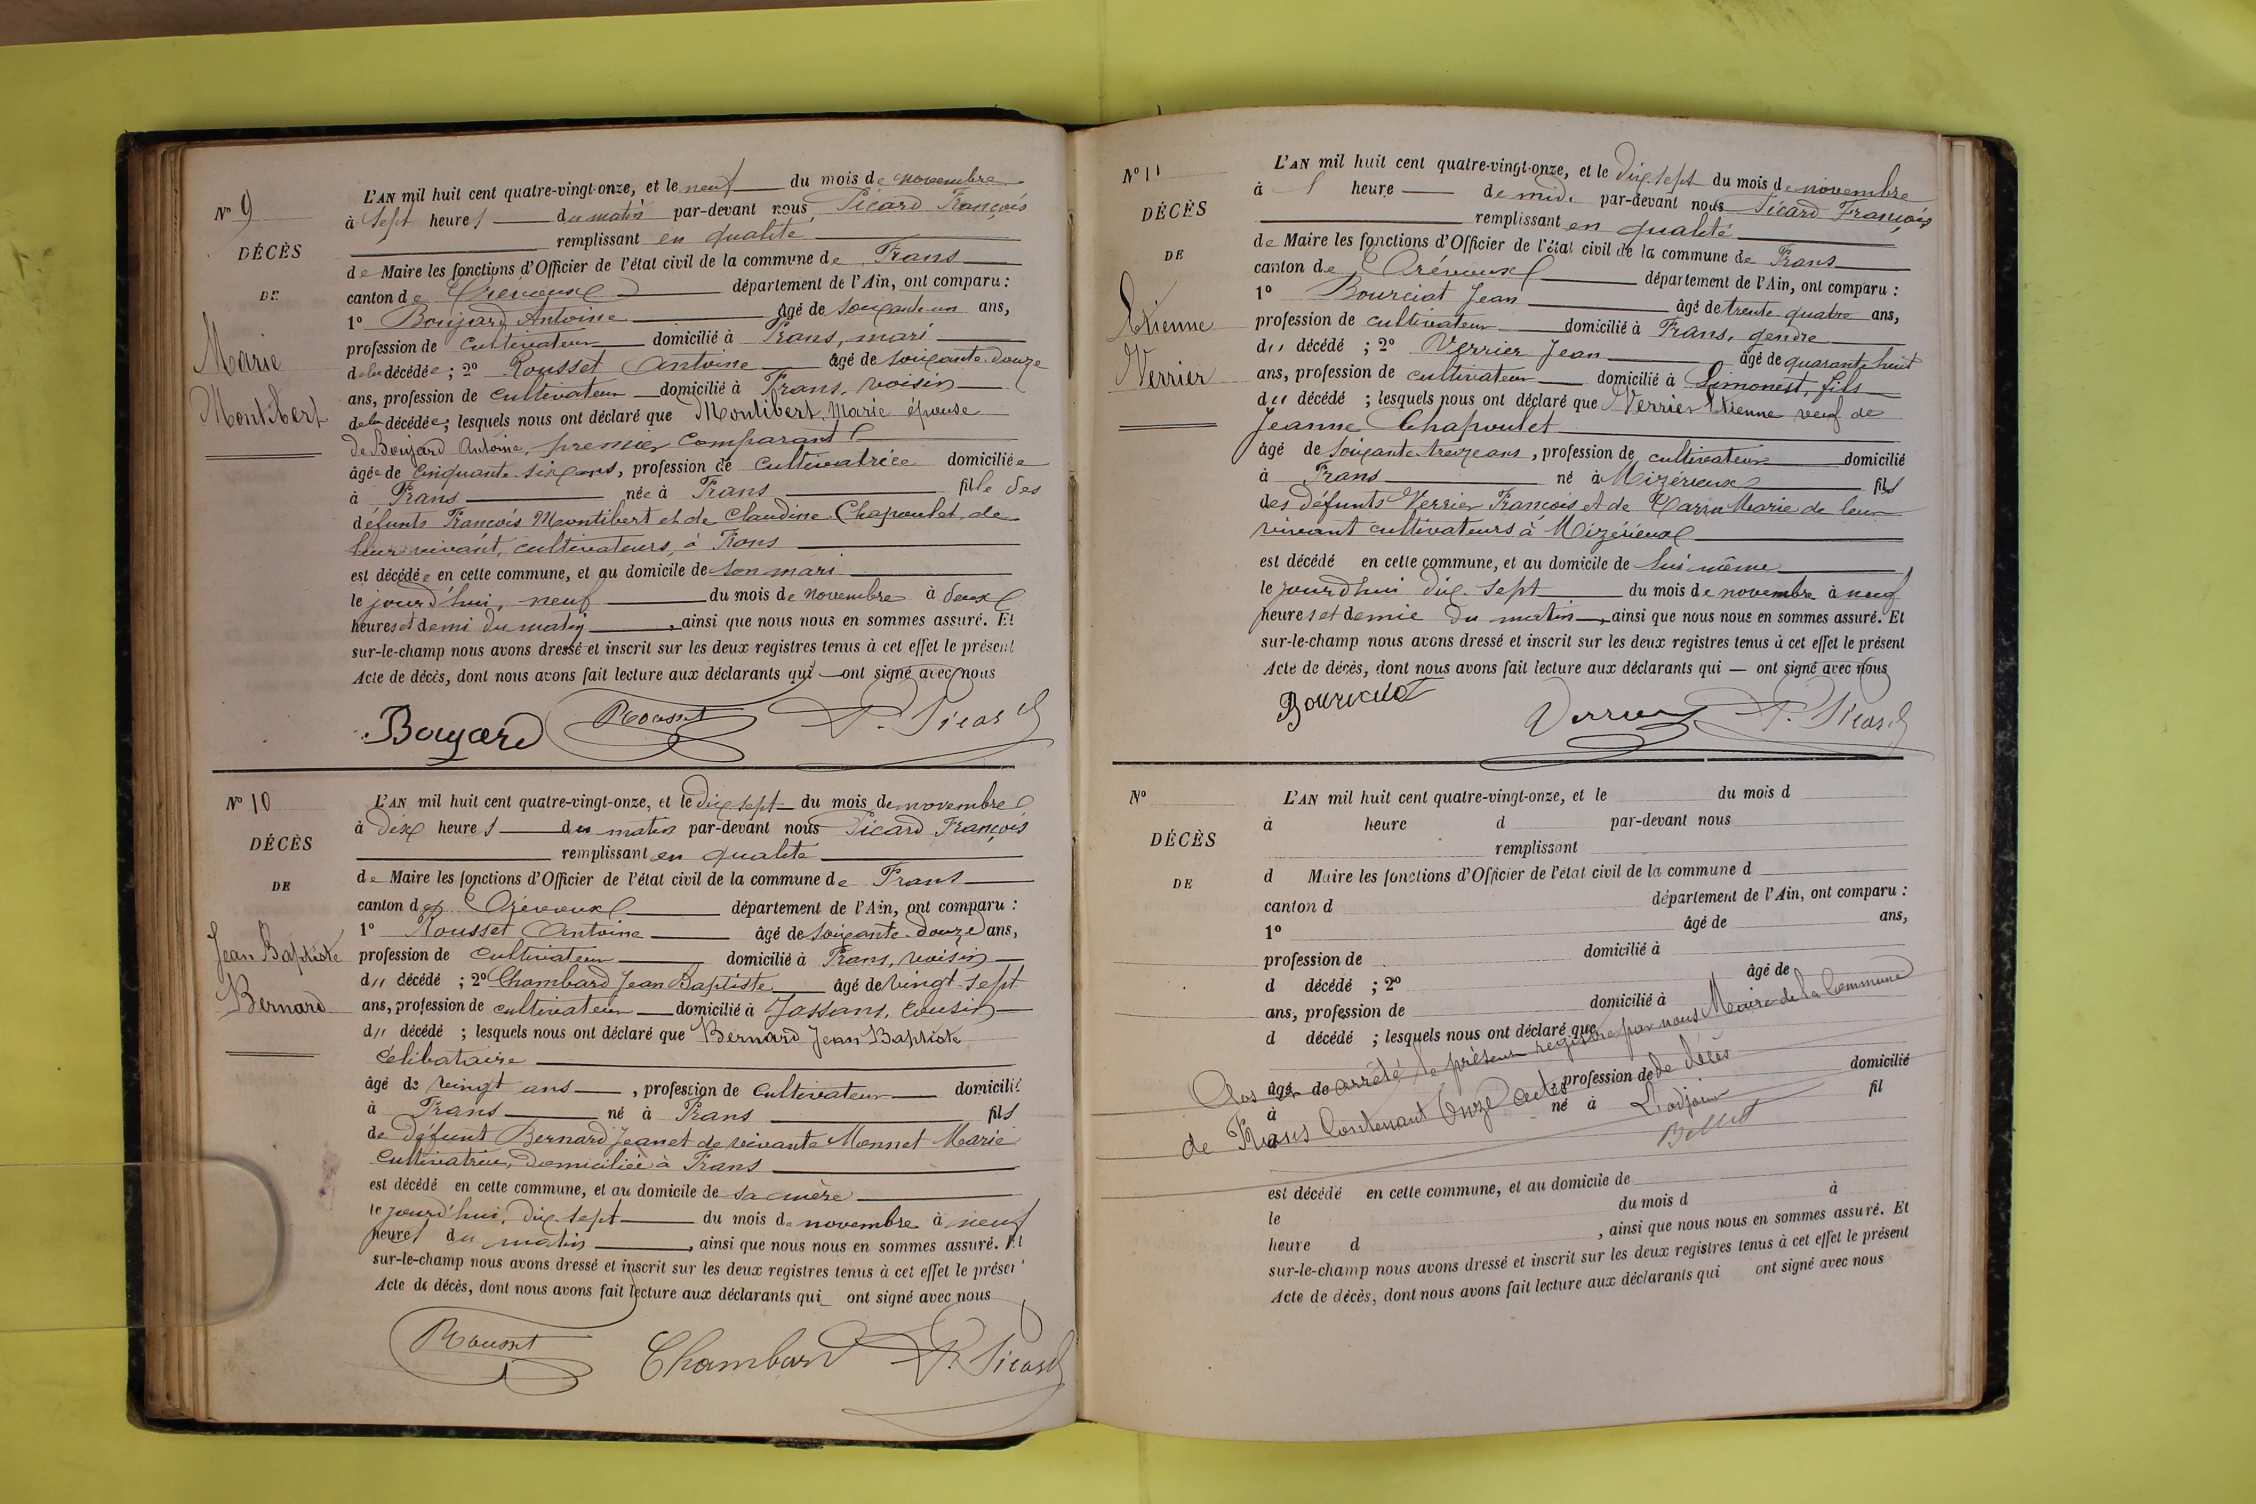 N° 9
DÉCÈS
DE
Marie
Montibert
L'AN mil huit cent quatre-vingt-onze, et le neuf du mois de novembre
à sept heures du matin par-devant nous Picard François
remplissant en qualité
de Maire les fonctions d'Officier de l'état civil de la commune de Frans
canton de Trévoux département de l'Ain, ont comparu :
1° Boujard Antoine âgé de soixante un ans,
profession de cultivateur domicilié à Frans, mari
de la décédée ; 2° Rousset Antoine âgé de soixante-douze
ans, profession de cultivateur domicilié à Frans, voisin
de la décédée ; lesquels nous ont déclaré que Montibert Marie épouse
de Boujard Antoine, premier comparant
âgée de cinquante-six ans, profession de cultivatrice domiciliée
à Frans née à Frans fille des
défunts François Montibert et de Claudine Chapoulet, de
leur vivant, cultivateurs, à Frans
est décédée en cette commune, et au domicile de son mari
le jourd'hui, neuf du mois de novembre à deux
heures et demi du matin, ainsi que nous nous en sommes assuré. Et
sur-le-champ nous avons dressé et inscrit sur les deux registres tenus à cet effet le présent
Acte de décès, dont nous avons fait lecture aux déclarants qui — ont signé avec nous
Boujard Rousset F. Picard
N° 10
DÉCÈS
DE
Jean Baptiste
Bernard
L'AN mil huit cent quatre-vingt-onze, et le dix sept du mois de novembre
à dix heures du matin par-devant nous Picard François
remplissant en qualité
de Maire les fonctions d'Officier de l'état civil de la commune de Frans
canton de Trévoux département de l'Ain, ont comparu :
1° Rousset Antoine âgé de soixante-douze ans,
profession de cultivateur domicilié à Frans, voisin
du décédé ; 2° Chambard Jean Baptiste âgé de vingt-sept
ans, profession de cultivateur domicilié à Jassans, cousin
du décédé ; lesquels nous ont déclaré que Bernard Jean Baptiste
célibataire
âgé de vingt ans, profession de cultivateur domicilié
à Frans né à Frans fils
de défunt Bernard Jean et de vivante Monnet Marie
cultivatrice, domiciliée à Frans
est décédé en cette commune, et au domicile de sa mère
le jourd'hui, dix-sept du mois de novembre à neuf
heures du matin, ainsi que nous nous en sommes assuré. Et
sur-le-champ nous avons dressé et inscrit sur les deux registres tenus à cet effet le présent
Acte de décès, dont nous avons fait lecture aux déclarants qui ont signé avec nous
Rousset Chambard F. Picard
N° 11
DÉCÈS
DE
Etienne
Verrier
L'AN mil huit cent quatre-vingt-onze, et le dix-sept du mois de novembre
à heure de midi par-devant nous Picard François
remplissant en qualité
de Maire les fonctions d'Officier de l'état civil de la commune de Frans
canton de Trévoux département de l'Ain, ont comparu :
1° Bourciat Jean âgé de trente quatre ans,
profession de cultivateur domicilié à Frans, gendre
du décédé ; 2° Verrier Jean âgé de quarante huit
ans, profession de cultivateur domicilié à Limonest, fils
du décédé ; lesquels nous ont déclaré que Verrier Etienne veuf de
Jeanne Chapoulet
âgé de soixante-treize ans, profession de cultivateur domicilié
à Frans né à Mizérieux fils
des défunts Verrier François et de Marie de leur
vivant cultivateurs à Mizérieux
est décédé en cette commune, et au domicile de lui-même
le jourd'hui dix-sept du mois de novembre à neuf
heures et demie du matin, ainsi que nous nous en sommes assuré. Et
sur-le-champ nous avons dressé et inscrit sur les deux registres tenus à cet effet le présent
Acte de décès, dont nous avons fait lecture aux déclarants qui — ont signé avec nous
Bourciat Verrier F. Picard
N°
DÉCÈS
DE
L'AN mil huit cent quatre-vingt-onze, et le du mois d
à heure d par-devant nous
remplissant
d Maire les fonctions d'Officier de l'état civil de la commune d
canton d département de l'Ain, ont comparu :
1° âgé de ans,
profession de domicilié à
d décédé ; 2° âgé de
ans, profession de domicilié à
d décédé ; lesquels nous ont déclaré que
Clos et arrêté le présent registre par nous Maire de la Commune
âgé de , profession de domicilié
de Frans contenant onze actes de décès
à né à fil
L'adjoint
d
est décédé en cette commune, et au domicile de
le du mois d à
heure d , ainsi que nous nous en sommes assuré. Et
sur-le-champ nous avons dressé et inscrit sur les deux registres tenus à cet effet le présent
Acte de décès, dont nous avons fait lecture aux déclarants qui ont signé avec nous